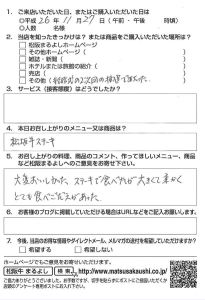 1. ご来店いただいた日、またはご購入いただいた日は
○平成 26年 11月 27日（午前・午後　　時頃）
○人数　　名様
2. 当店を知ったきっかけは？ または商品をご購入いただいた場所は？
□ 松阪まるよしホームページ
□ その他ホームページ（　　）
□ 雑誌・新聞（　　）
□ ホテルまたは旅館の紹介（　　）
□ 売店（　　）
□ その他（
3. サービス（接客態度）はどうでしたか？
4. 本日お召し上がりのメニュー又は商品は？
松阪牛ステーキ
5. お召し上がりの料理、商品のコメント、作ってほしいメニュー、商品など松阪まるよしへのご意見をお寄せ下さい。
大変おいしかった。ステーキで食べやすい大きさで柔かく
とても食べごたえがあった。
6. お客様のブログに掲載していただける場合はURLなどをご記入お願いします。
7. 今後、当店のお得な情報やダイレクトメール、メルマガの送付を希望していただけますか？
□ 希望する　□ 希望しない
ホームページでもご意見をお寄せいただけます。
松阪牛 まるよし 検索 http://www.matsusakaushi.co.jp/